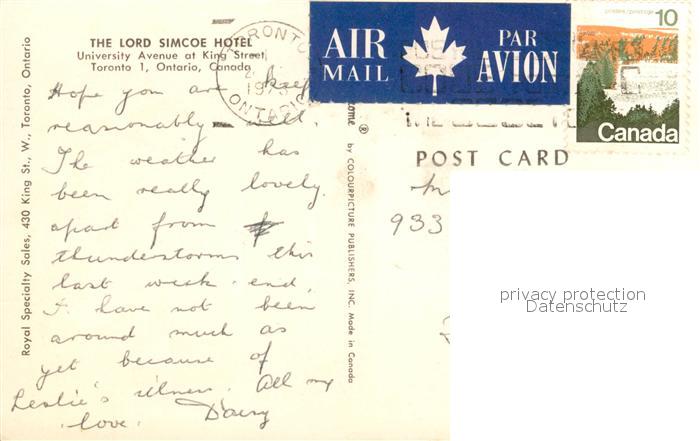 THE LORD SIMCOE HOTEL
University Avenue at King Street
Toronto 1, Ontario, Canada
Hope you are keep
reasonably well.
The weather has
been really lovely
apart from
thunderstorms this
last week-end.
I have not been
around much as
yet because of
Leslie's illness. All my
love. Daisy
Royal Specialty Sales, 430 King St., W., Toronto, Ontario
TORONTO
ONTARIO
AIR MAIL
PAR AVION
postes/postage
10
Canada
® by COLOURPICTURE PUBLISHERS, INC. Made in Canada
POST CARD
933
privacy protection
Datenschutz